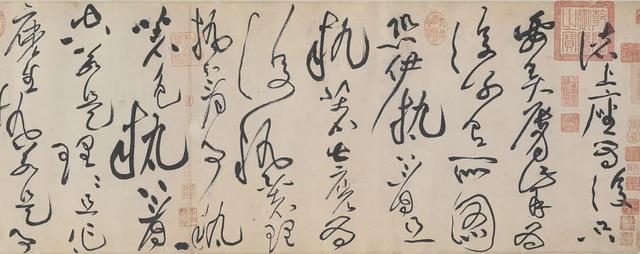 諸上座為復只
要弄脣觜為
復別有所圖
恐伊執著且
執著甚麼為
復執著理
執著事執
著色執著
空若是理〻且作
麼生執若是事